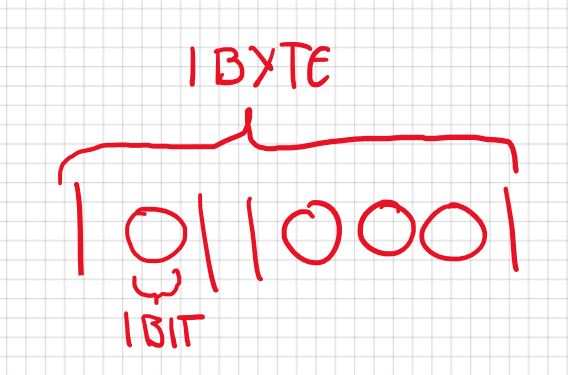 1 BYTE
10110001
1 BIT